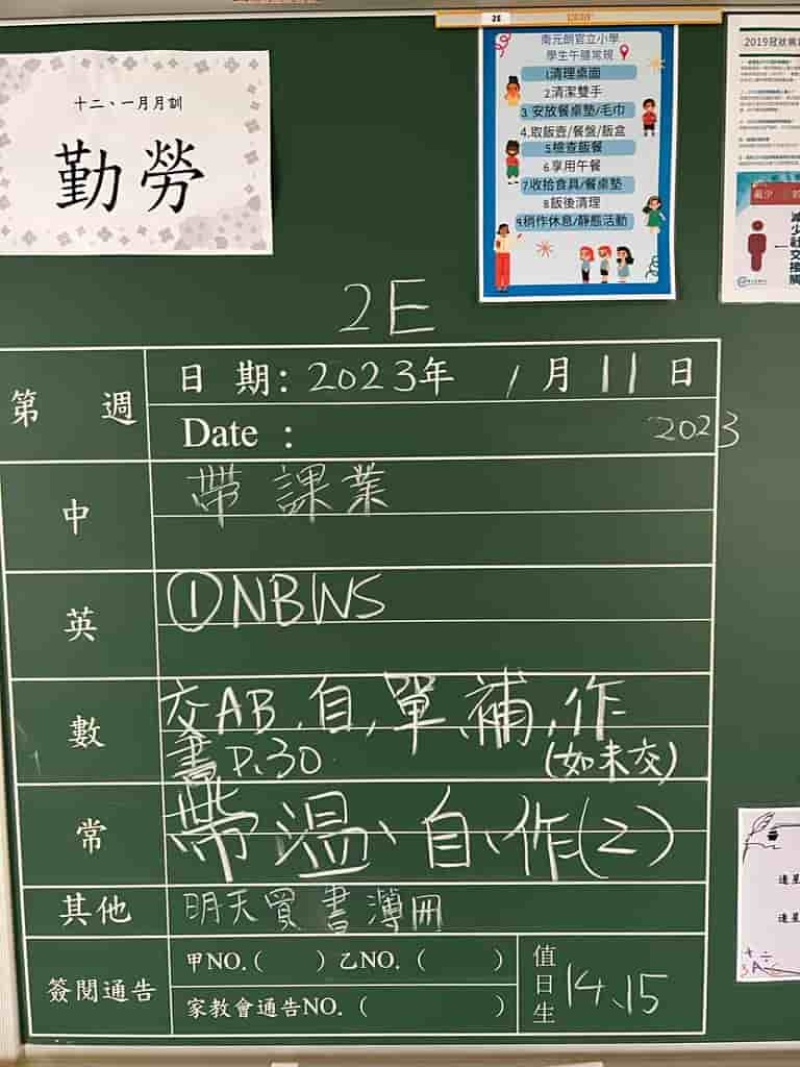 2E
十二、一月月訓
勤勞
南元朗官立小學
學生午膳常規
1清理桌面
2清潔雙手
3.安放餐桌墊/毛巾
4.取飯壺/餐盤/飯盒
5檢查飯餐
6享用午餐
7收拾食具/餐桌墊
8飯後清理
9.稍作休息/靜態活動
2019冠狀病
減少
減少社交接觸
2E
第 週
日 期: 2023年 1月11日
Date : 2023
中
帶課業
英
①NBWS
數
交AB、自、單、補、作
書P.30 (如未交)
常
帶溫、自、作(2)
其他
明天買書簿冊
簽閱通告
甲NO.( ) 乙NO. ( )
家教會通告NO. ( )
值日生
14、15